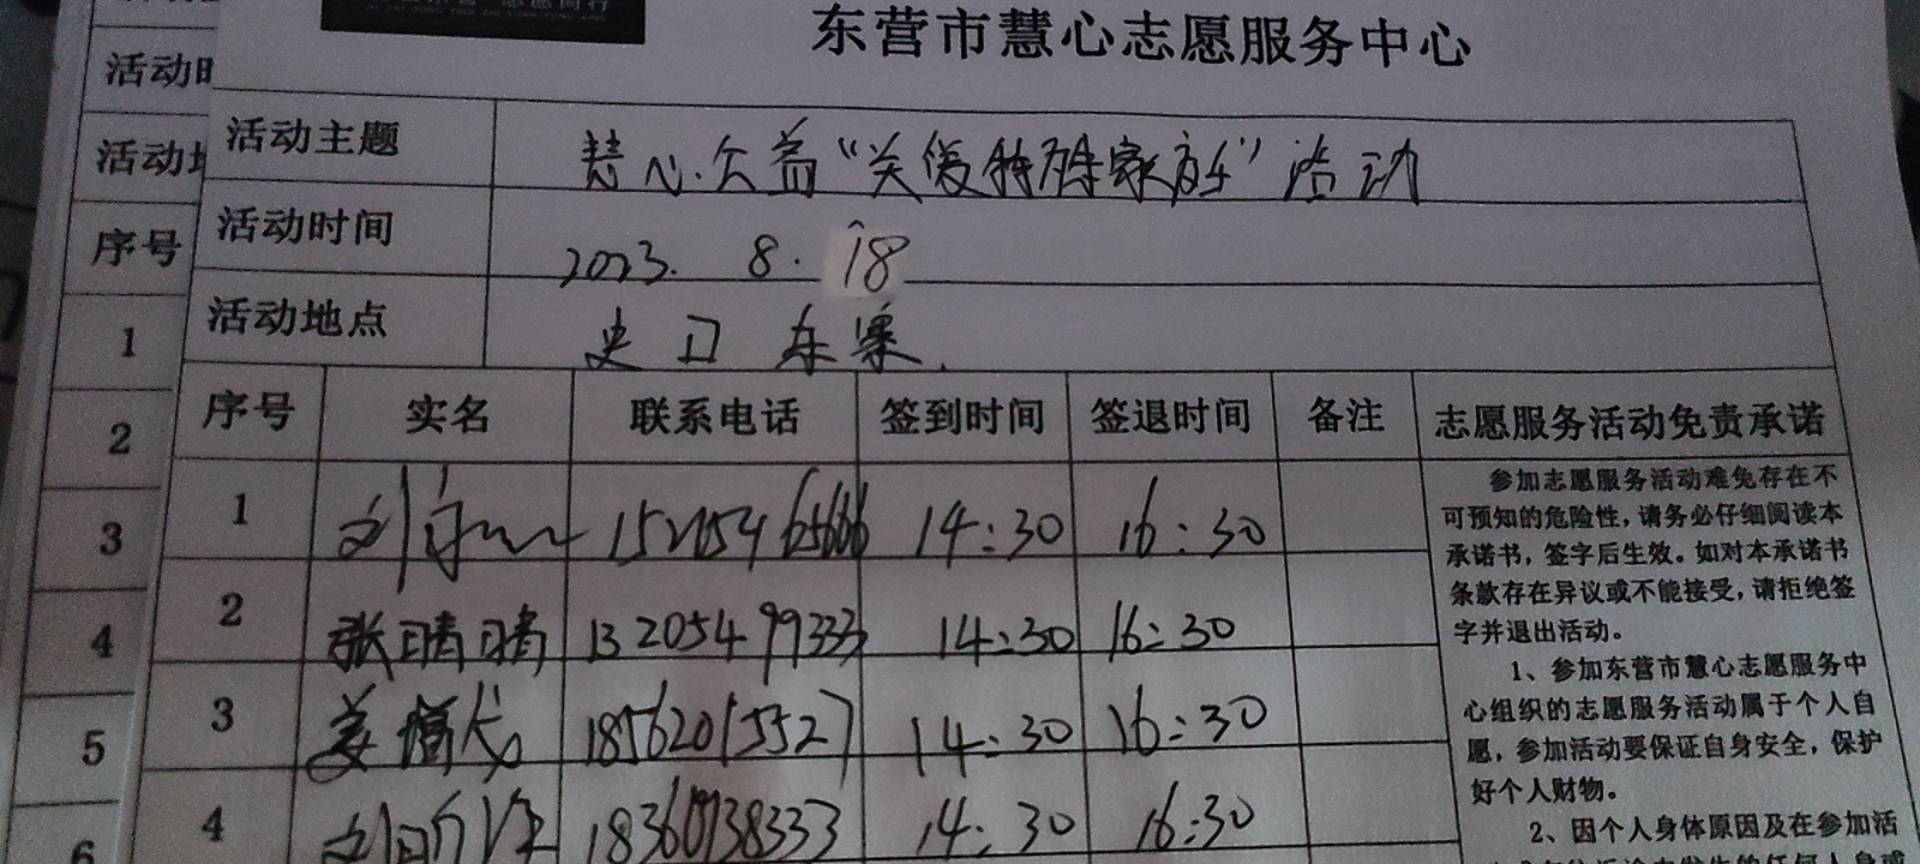 志愿同行
东营市慧心志愿服务中心
活动主题 慧心公益“关爱特殊家庭”活动
活动时间 2023. 8. 18
活动地点 史口 东寨
序号 实名 联系电话 签到时间 签退时间 备注 志愿服务活动免责承诺
1 14:30 16:30
2 张晴晴 13205499333 14:30 16:30
3 姜 18562015527 14:30 16:30
4 18360738333 14:30 16:30
参加志愿服务活动难免存在不
可预知的危险性，请务必仔细阅读本
承诺书，签字后生效。如对本承诺书
条款存在异议或不能接受，请拒绝签
字并退出活动。
1、参加东营市慧心志愿服务中
心组织的志愿服务活动属于个人自
愿，参加活动要保证自身安全，保护
好个人财物。
2、因个人身体原因及在参加活
活动时
活动地
序号
1
2
3
4
5
6